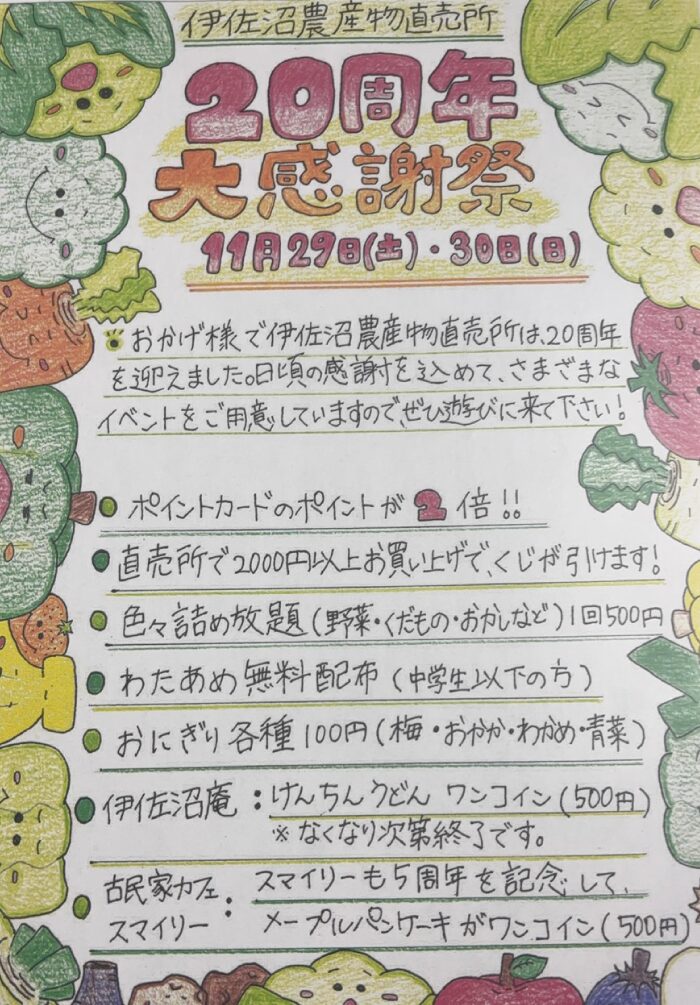 伊佐沼農産物直売所
20周年
大感謝祭
11月29日(土)・30日(日)
おかげ様で伊佐沼農産物直売所は、20周年
を迎えました。日頃の感謝を込めて、さまざまな
イベントをご用意していますので、ぜひ遊びに来て下さい!
ポイントカードのポイントが2倍!!
直売所で2000円以上お買い上げで、くじが引けます!
色々詰め放題(野菜・くだもの・おかしなど)1回500円
わたあめ無料配布(中学生以下の方)
おにぎり各種100円(梅・おかか・わかめ・青菜)
伊佐沼庵:けんちんうどん ワンコイン(500円)
※なくなり次第終了です。
古民家カフェ
スマイリー:
スマイリーも5周年を記念して、
メープルパンケーキがワンコイン(500円)